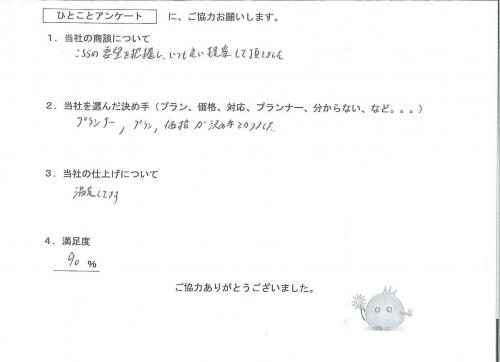 ひとことアンケート に、ご協力お願いします。
1．当社の商談について
こちらの要望を把握し、いつも良い提案して頂きました
2．当社を選んだ決め手（プラン、価格、対応、プランナー、分からない、など。。。）
プランナー，プラン，価格が決め手となりました。
3．当社の仕上げについて
満足してます
4．満足度
90 %
ご協力ありがとうございました。